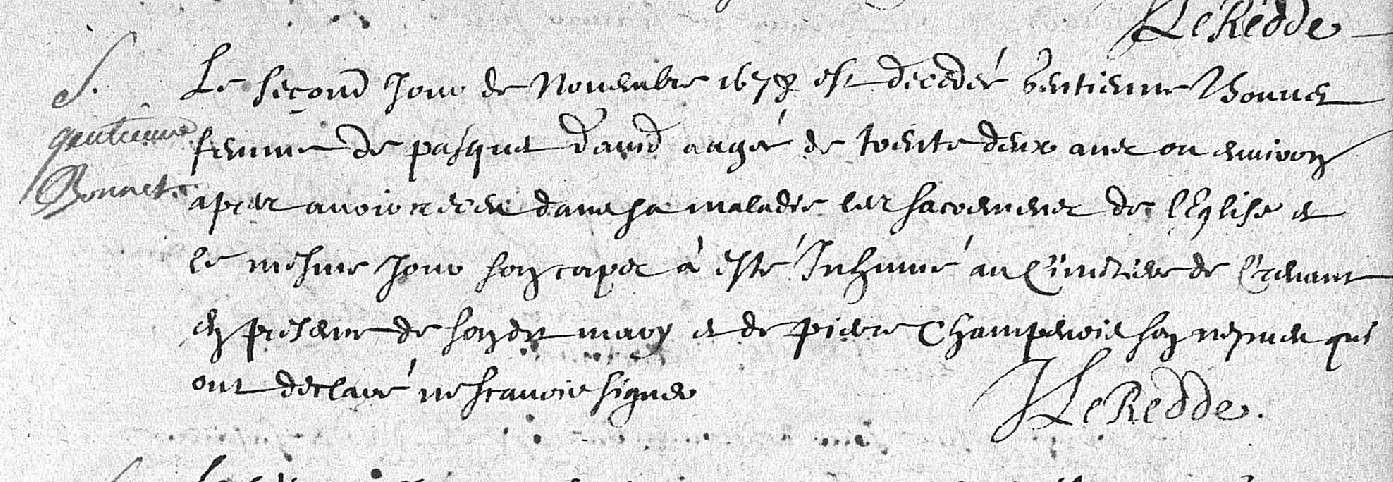 Le Redde
S.
gentienne
Bonnet
Le second jour de Novembre 1678 est decedeé Gentienne Bonnet
femme de pasquet david aageé de trente deux ans ou environ
apres avoir receu dans sa maladie les sacremens de l'Eglise et
le mesme jour son corps à esté Inhumé au Cimetiere de Crevant
en presence de sondt mary et de pierre Champenois son nepveu qui
ont declaré ne scavoir signer
Le Redde.